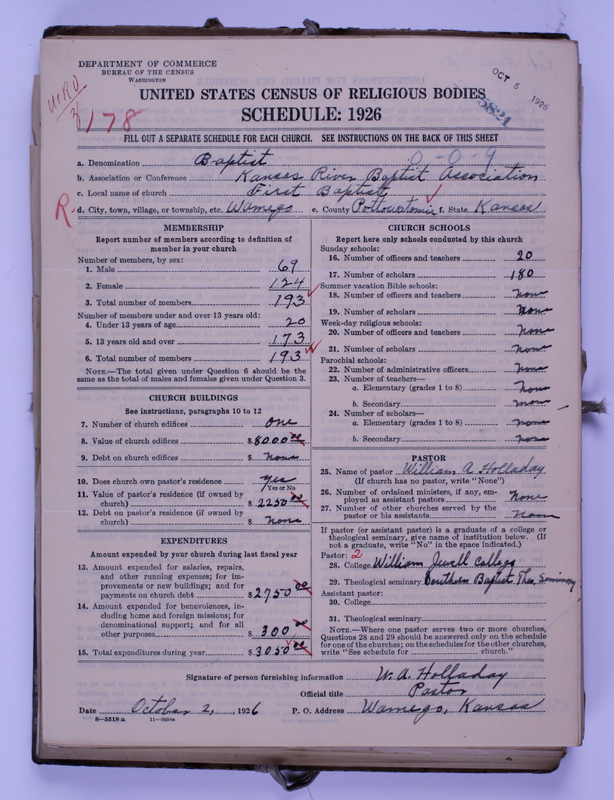 DEPARTMENT OF COMMERCE
BUREAU OF THE CENSUS
WASHINGTON
OCT 6 1926
UNITED STATES CENSUS OF RELIGIOUS BODIES
SCHEDULE: 1926
178
FILL OUT A SEPARATE SCHEDULE FOR EACH CHURCH. SEE INSTRUCTIONS ON THE BACK OF THIS SHEET
a. Denomination Baptist 0-0-9
b. Association or Conference Kansas River Baptist Association
c. Local name of church First Baptist
R. d. City, town, village, or township, etc. Wamego e. County Pottowatomie f. State Kansas
MEMBERSHIP
Report number of members according to definition of
member in your church
Number of members, by sex:
1. Male 69
2. Female 124
3. Total number of members 193
Number of members under and over 13 years old:
4. Under 13 years of age 20
5. 13 years old and over 173
6. Total number of members 193
NOTE.—The total given under Question 6 should be
the same as the total of males and females given under Question 3.
CHURCH BUILDINGS
See instructions, paragraphs 10 to 12
7. Number of church edifices one
8. Value of church edifices $8000 00
9. Debt on church edifices $ none
10. Does church own pastor's residence yes
Yes or No
11. Value of pastor's residence (if owned by
church) $ 2250 00
12. Debt on pastor's residence (if owned by
church) $ none
EXPENDITURES
Amount expended by your church during last fiscal year
13. Amount expended for salaries, repairs,
and other running expenses; for im-
provements or new buildings; and for
payments on church debt $2750 00
14. Amount expended for benevolences, in-
cluding home and foreign missions; for
denominational support; and for all
other purposes $ 300 00
15. Total expenditures during year $3050 00
CHURCH SCHOOLS
Report here only schools conducted by this church
Sunday schools:
16. Number of officers and teachers 20
17. Number of scholars 180
Summer vacation Bible schools:
18. Number of officers and teachers none
19. Number of scholars none
Week-day religious schools:
20. Number of officers and teachers none
21. Number of scholars none
Parochial schools:
22. Number of administrative officers none
23. Number of teachers—
a. Elementary (grades 1 to 8) none
b. Secondary none
24. Number of scholars—
a. Elementary (grades 1 to 8) none
b. Secondary none
PASTOR
25. Name of pastor William A Holladay
(If church has no pastor, write "None")
26. Number of ordained ministers, if any, em-
ployed as assistant pastors None
27. Number of other churches served by the
pastor or his assistants none
If pastor (or assistant pastor) is a graduate of a college or
theological seminary, give name of institution below. (If
not a graduate, write "No" in the space indicated.)
Pastor: 2
28. College William Jewell College
29. Theological seminary Southern Baptist Theo. Seminary
Assistant pastor:
30. College
31. Theological seminary
NOTE.—Where one pastor serves two or more churches,
Questions 28 and 29 should be answered only on the schedule
for one of the churches; on the schedules for the other churches,
write "See schedule for church."
Signature of person furnishing information W. A. Holladay
Official title Pastor
Date October 2, , 1926 P. O. Address Wamego, Kansas
8—5518 a